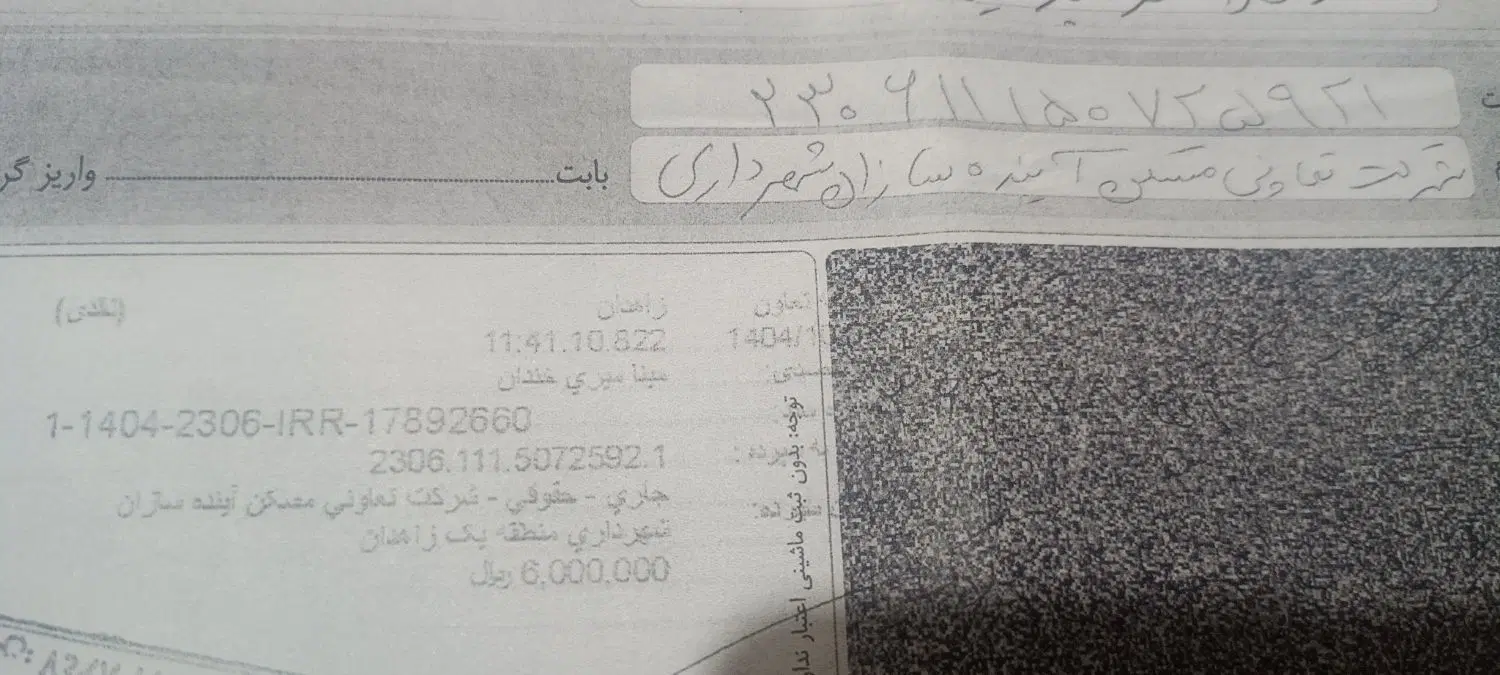 ۲۳۰۶۱۱۱۵۰۷۲۵۹۲۱
شرکت تعاونی مسکن آینده سازان شهرداری
بابت
واریز
تعاون زاهدان (نقدی)
1404/1 11:41.10.822
مینا میري خندان
1-1404-2306-IRR-17892660
2306.111.5072592.1
جاري - حقوقي - شرکت تعاوني مسکن آینده سازان
شهرداري منطقه یک زاهدان
6,000,000 ریال
توجه: بدون ثبت ماشینی اعتبار